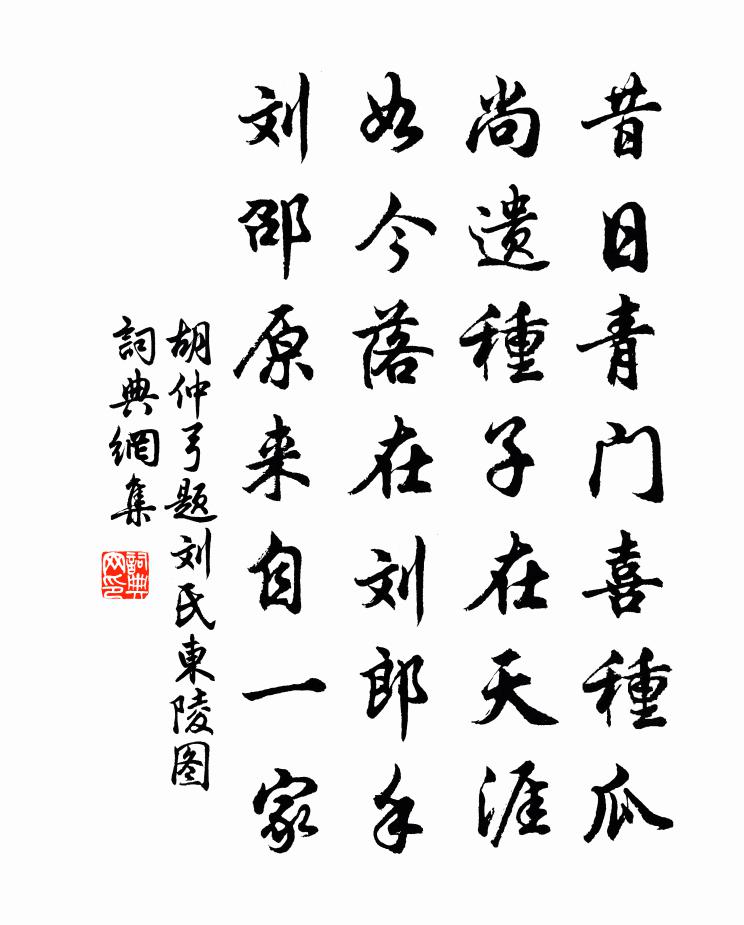 昔日青门喜種瓜
尚遗種子在天涯
如今落在刘郎手
刘邵原来自一家
胡仲弓题刘氏東陵图
詞典網集
詞典
网印